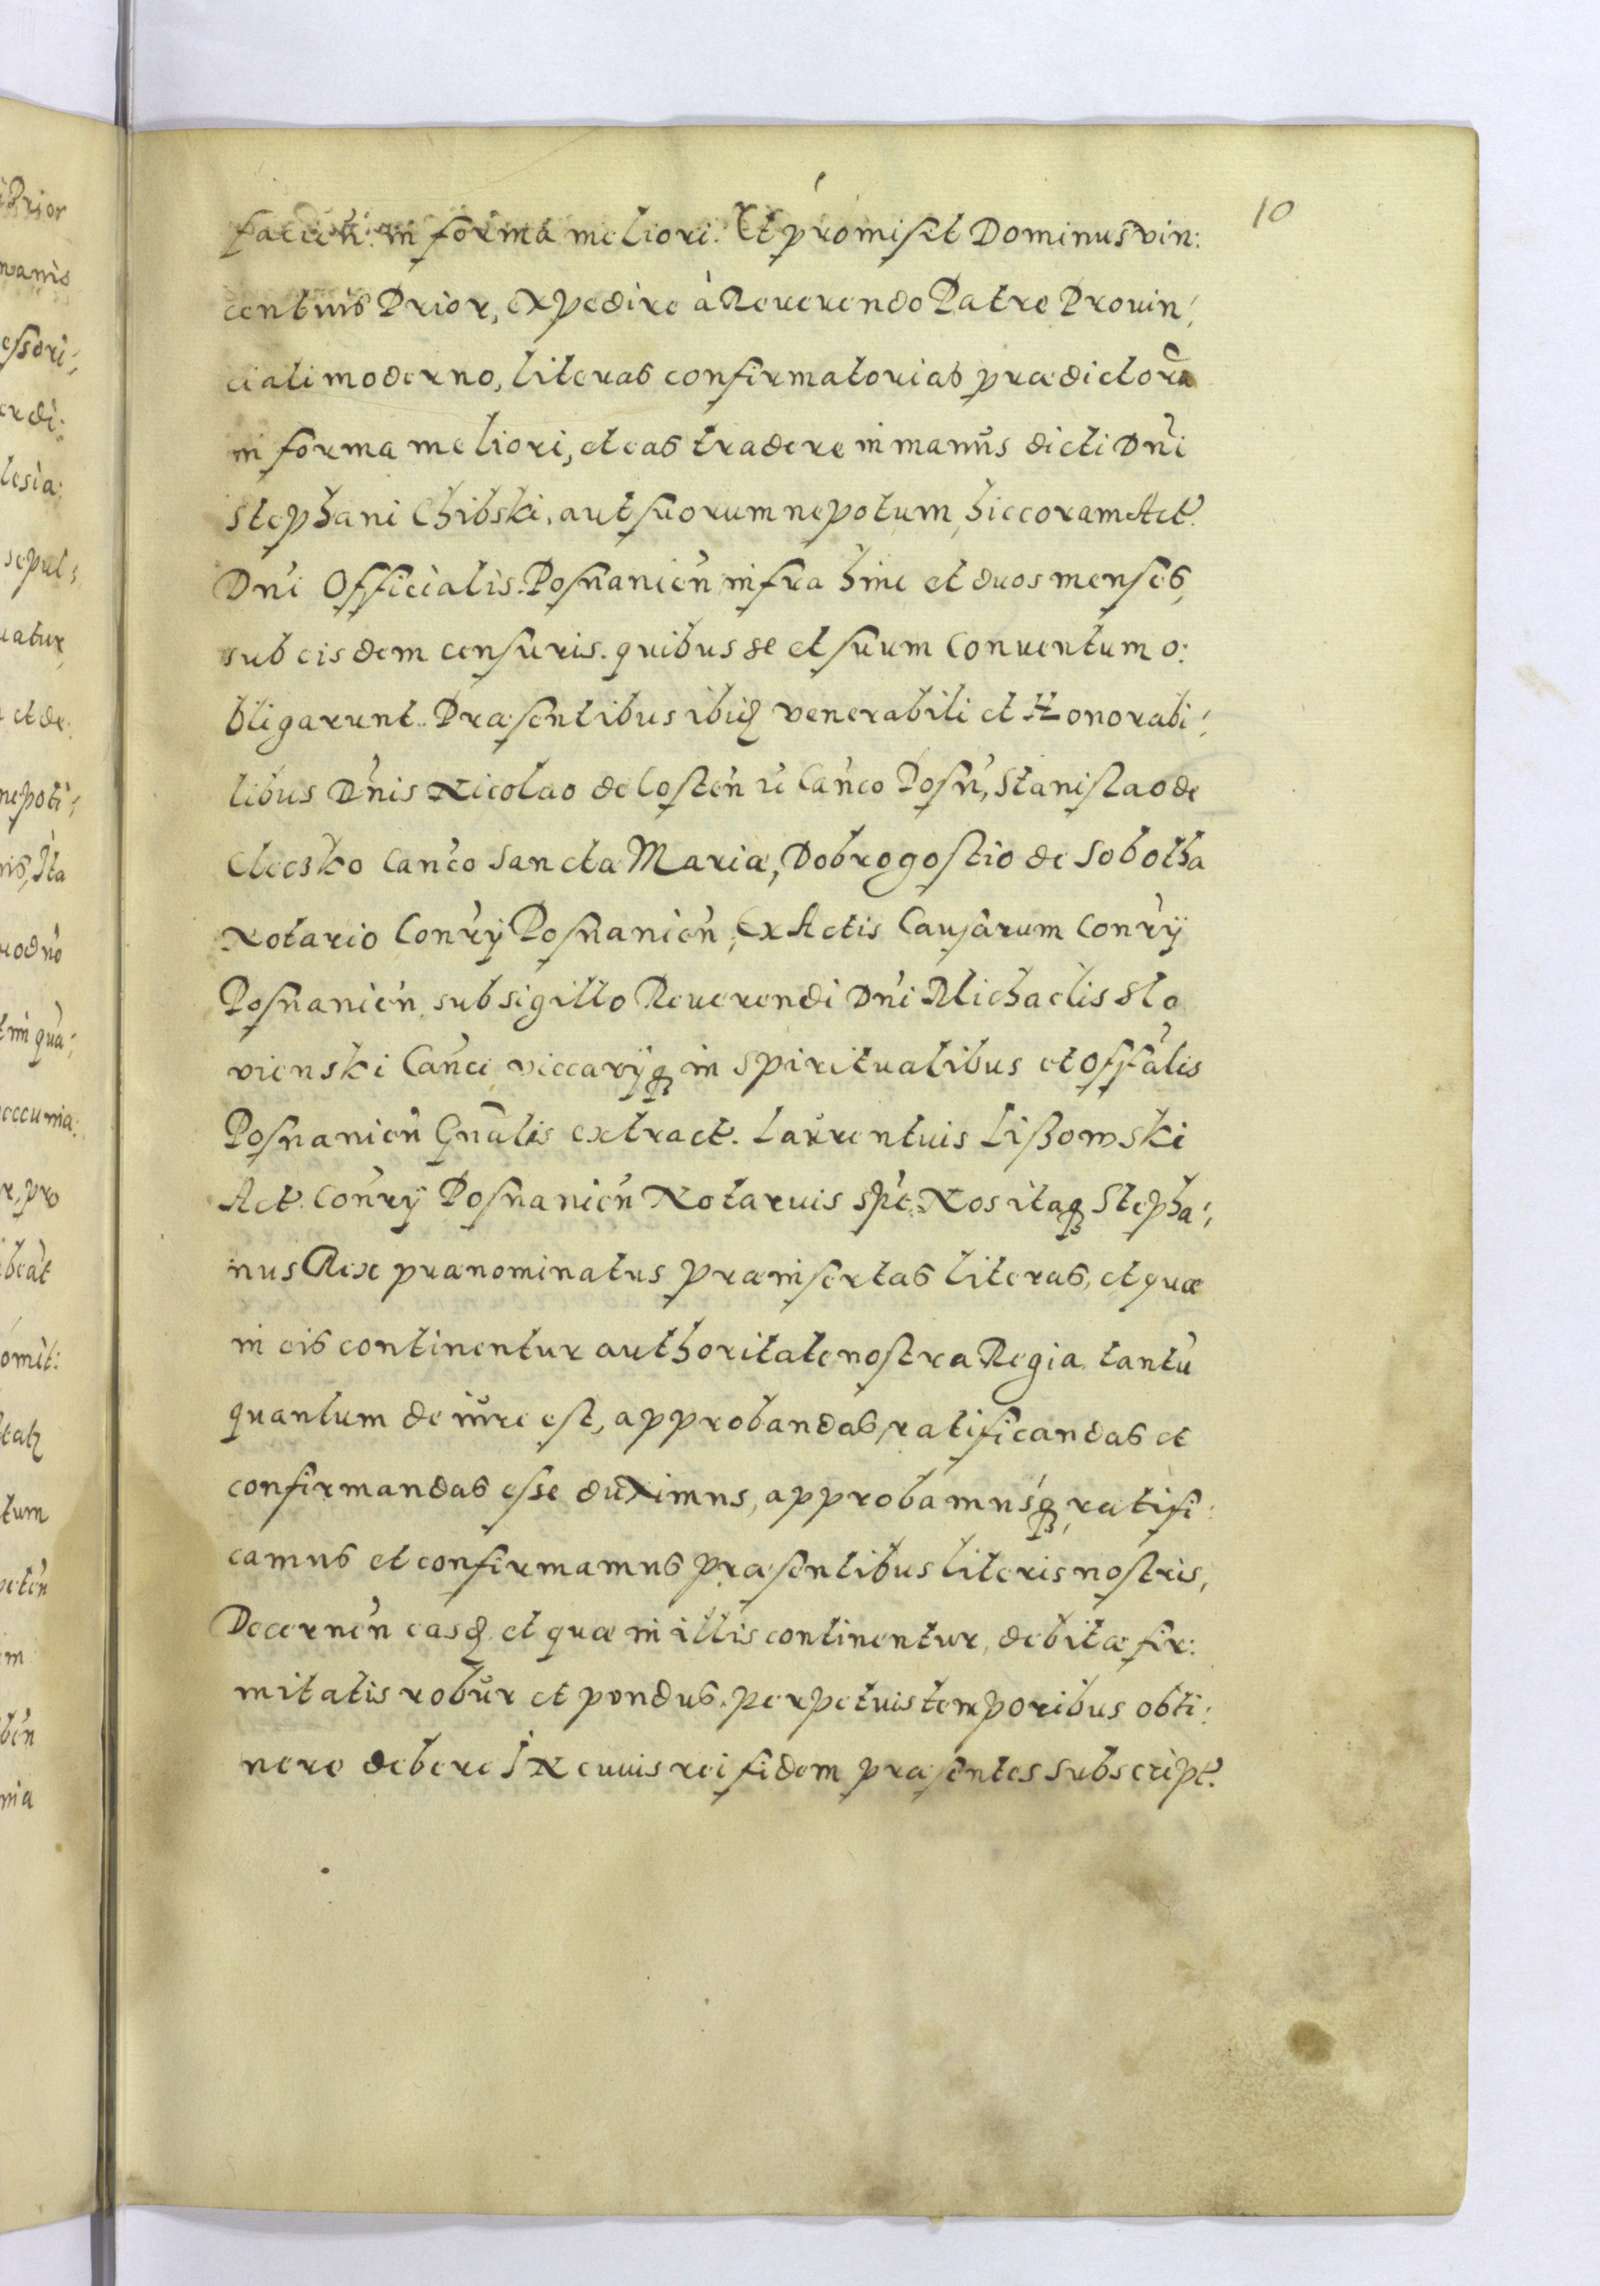 10
facien: in forma meliori. Et promisit Dominus Vin:
centius Prior, expedire à Reuerendo Patre Prouin:
ciali moderno, literas confirmatorias prædictorũ
in forma meliori, et eas tradere in manus dicti Dni
Stephani Chibski, aut suorum nepotum, hic coram Act.
Dni Officialis. Posnanien infra hinc et duos menses,
sub eisdem censuris. quibus se et suum Conuentum o:
bligarunt. Præsentibus ibidq venerabili et Honorabi:
libus Dnis Nicolao de Costen ü Canco Posn, Stanislao de
Clecsko Canco Sanctæ Mariæ, Dobrogostio de Sobotha
Notario Conrÿ Posnanien, Ex Actis Causarum Conrÿ
Posnanien sub sigillo Reuerendi Dni Michaelis Slo
vienski Canci viccarÿq in Spiritualibus et Offalis
Posnanien Gnalis extract. Laurentius Lißowski
Act. Conrÿ Posnanien Notarius Spt. Nos itaq Stepha:
nus Rex prænominatus præinsertas literas, et quæ
in eis continentur authoritate nostra Regia tantũ
quantum de iure est, approbandas, ratificandas et
confirmandas esse duximus, approbamusq, ratifi:
camus et confirmamus præsentibus literis nostris,
Decernen easq. et quæ in illis continentur, debitæ fir:
mitatis robur et pondus. perpetuis temporibus obti:
nere debere IN cuius rei fidem præsentes subscript.